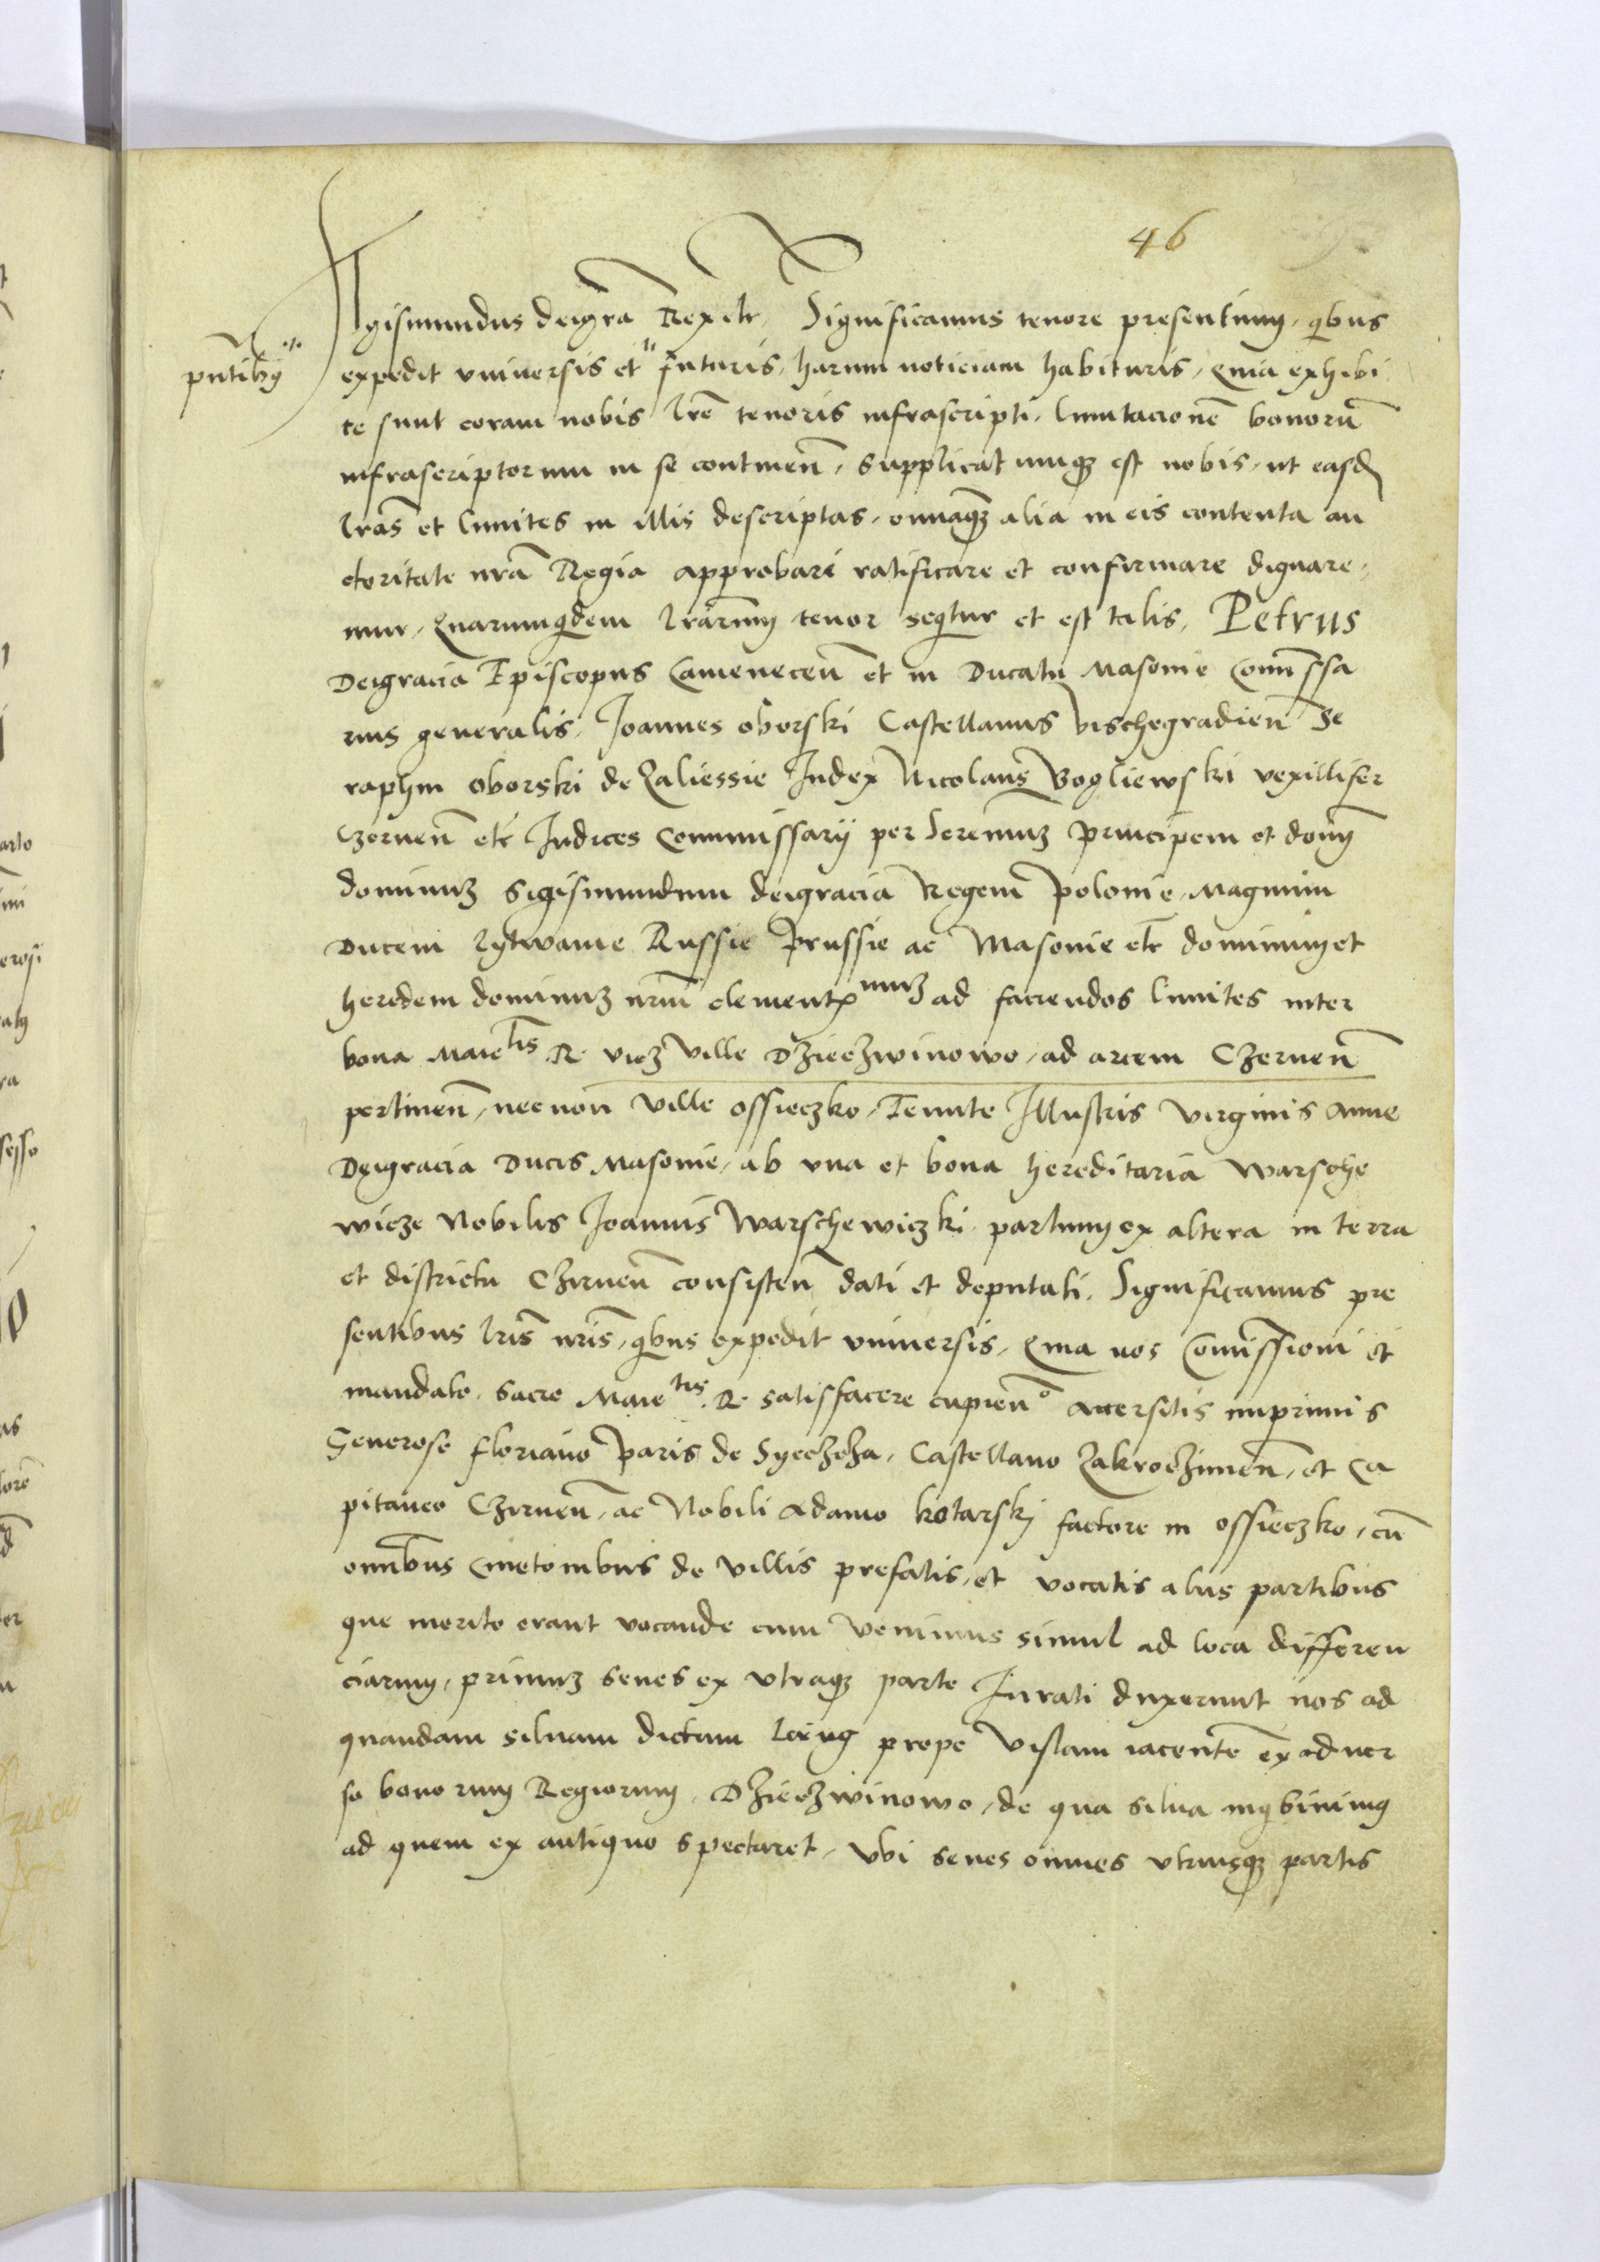 46
Sigismundus deigra͞ Rex etc. Significamus tenore presentium, qibus
pntibus
expedit vniuersis et futuris, harum noticiam habituris, Quia exhibi
te sunt coram nobis lre͞ tenoris infrascripti, limitacione͞ bonoru͞
infrascriptorum in se continen͞, supplicatumqꝫ est nobis, ut easd
lras͞ et limites in illis descriptas, omniaqꝫ alia in eis contenta au
ctoritate nra͞ Regia approbari ratificare et confirmare dignare,
mur, Quarumquidem lrarum͞ tenor seqitur et est talis, Petrus
Deigracia Episcopus Camenecen͞ et in Ducatu Masouie Comissa
rius generalis, Joannes oborski Castellanus Vischegradien͞ Se
raphin oborski de Zaliessie Iudex Nicolaus Bogliewski vexillifer
Czernen͞ etc Iudices Commissarij per Serenimuꝫ principem et domin͞
dominuꝫ Sigismundum deigracia Regem Polonie, Magnum
Ducem Lytwanie Russie Prussie ac Masouie etc dominum et
heredem dominuꝫ nrm͞ clementxmuꝫ ad faciendos limites inter
bona Maietis R. vicꝫ Ville Dzieczwinowo, ad arcem Czernen͞
pertinen͞, necnon Ville ossieczko, Tenute Illustris virginis Anne
Deigracia Ducis Masouie, ab vna et bona hereditaria Warsche
wicze Nobilis Joannis Warschewiczki partium ex altera in terra
et districtu Czirnen͞ consisten͞ dati et deputati, Significamus pre
sentibus lris͞ nris͞, qibus expedit vniuersis, Quia nos Comissioni et
mandato Sacre Maietis. R. satisfacere cupien͞ accersitis inprimis
Generoso floriano Paris de Syeczcza, Castellano Zakroczimen͞, et Ca
pitaneo Czirnen͞, ac Nobili Adamo kotarskj factore in ossieczko, cu͞
omnibus Cmetonibus de Villis prefatis, et vocatis alijs partibus
que merito erant vocande cum Venimus simul ad loca differen
ciarum, primuꝫ senes ex vtraqꝫ parte Jurati duxerunt nos ad
quandam siluam dictam prope Vislam iacente͞ ex aduer
so bonorum Regiorum, Dzieczwinowo, de qua silua inqbiuimus
ad quem ex antiquo spectaret, Vbi senes omnes vtriusqꝫ partis